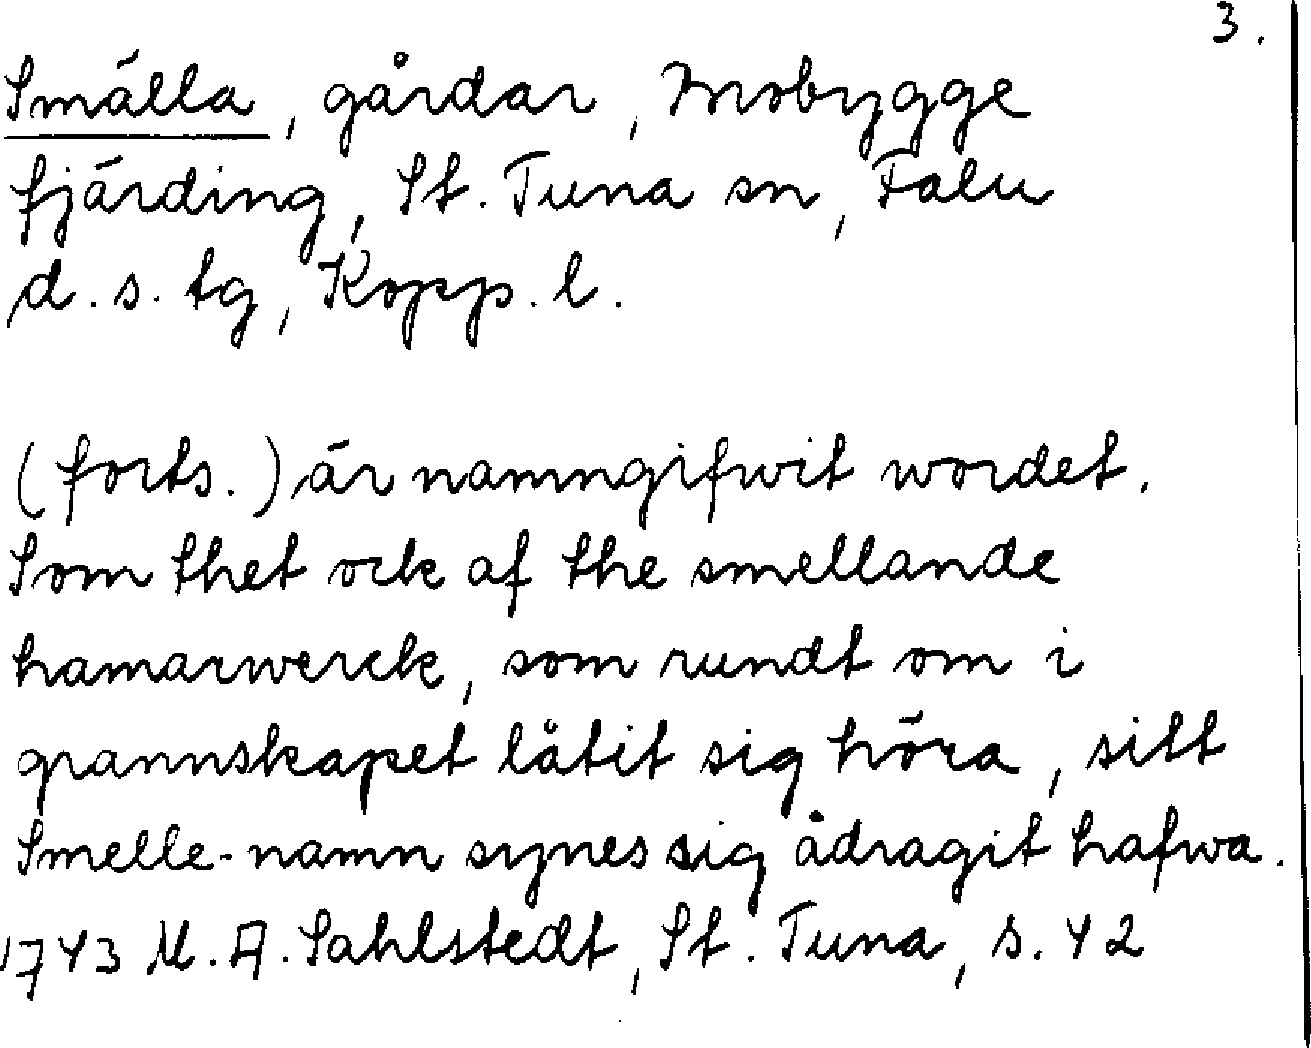 3.
Smälla, gårdar, Mobygge
fjärding, St. Tuna sn, Falu
d. s. tg, Kopp. l.
(forts.) är namngifwit wordet.
Som thet ock af the smellande
hamarwerck, som rundt om i
grannskapet låtit sig höra, sitt
Smelle-namn synes sig ådragit hafwa.
1743 M. A. Sahlstedt, St. Tuna, s. 42